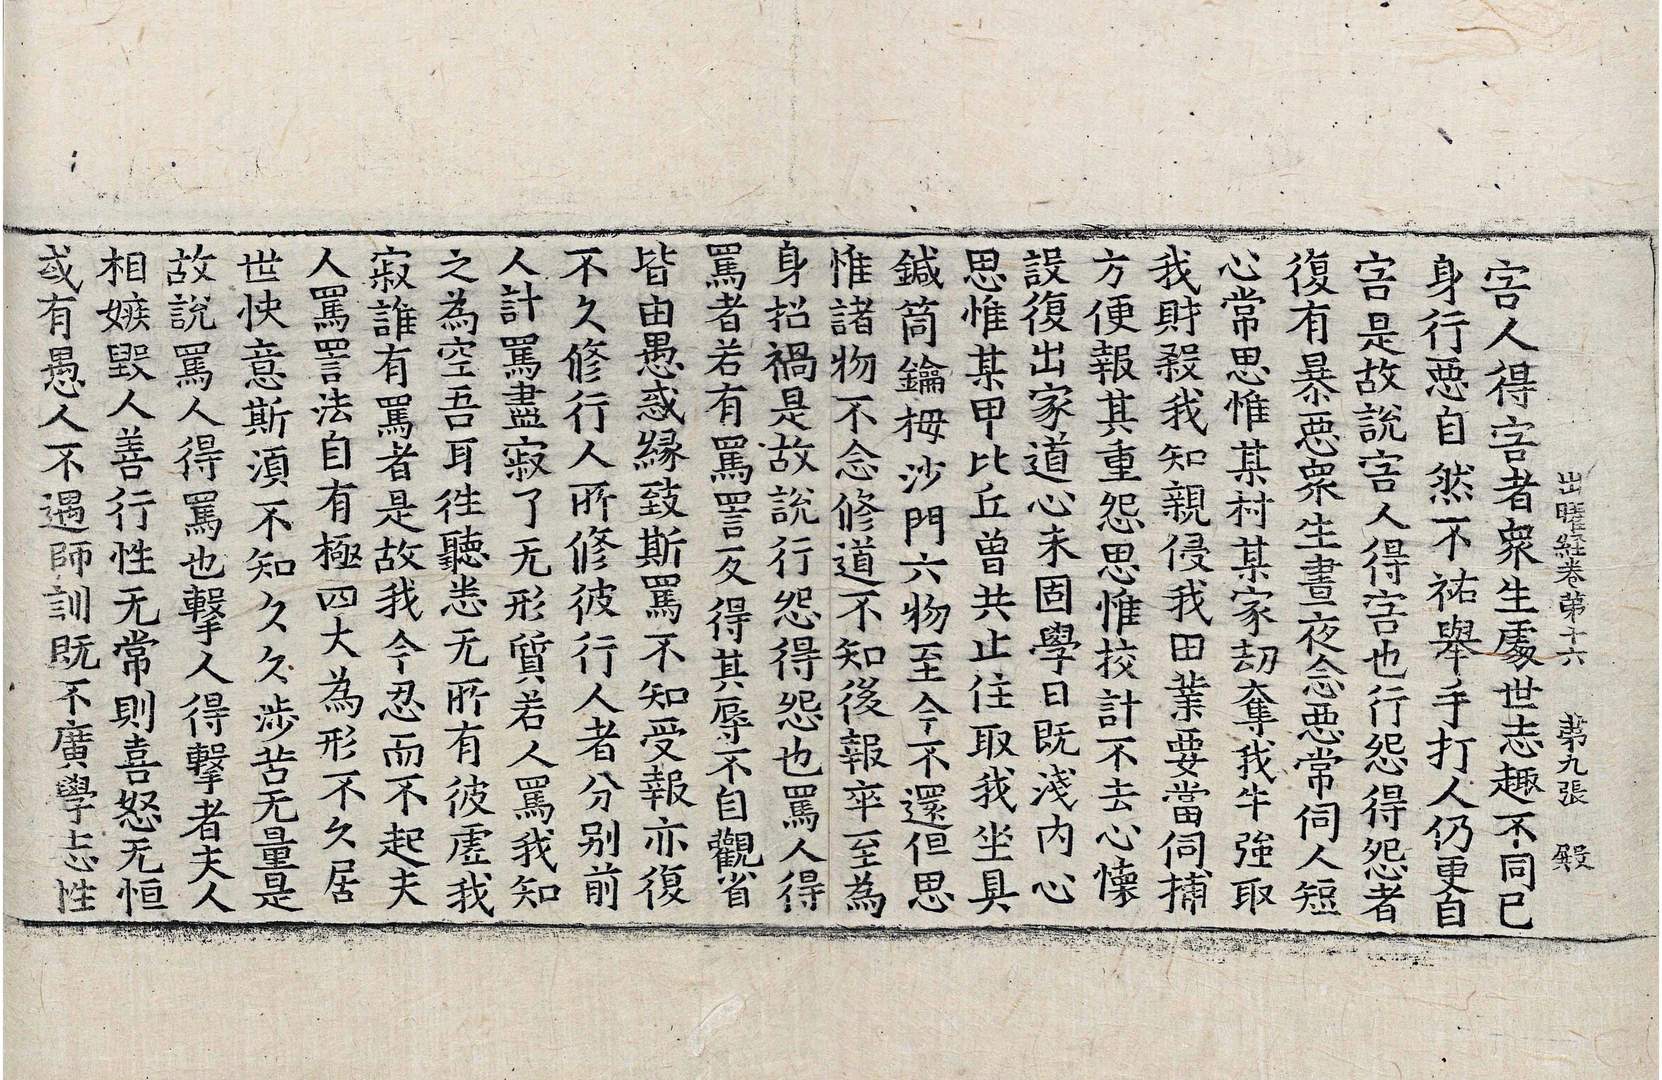 出曜經卷第十六 第九張 殿
害人得害者衆生處世志趣不同已
身行惡自然不祐舉手打人仍更自
害是故說害人得害也行怨得怨者
復有暴惡衆生晝夜念惡常伺人短
心常思惟某村某家劫奪我牛強取
我財殺我知親侵我田業要當伺捕
方便報其重怨思惟挍計不去心懷
設復出家道心未固學日既淺内心
思惟某甲比丘曾共止住取我坐具
鍼筒鑰栂沙門六物至今不還但思
惟諸物不念修道不知後報卒至爲
身招禍是故說行怨得怨也罵人得
罵者若有罵詈反得其辱不自觀省
皆由愚惑緣致斯罵不知受報亦復
不久修行人所修彼行人者分別前
人計罵盡寂了无形質若人罵我知
之爲空吾耳往聽悉无所有彼虛我
寂誰有罵者是故我今忍而不起夫
人罵詈法自有極四大爲形不久居
世快意斯湏不知久久涉苦无量是
故說罵人得罵也擊人得擊者夫人
相嫉毀人善行性无常則喜怒无恒
或有愚人不遇師訓既不廣學志性